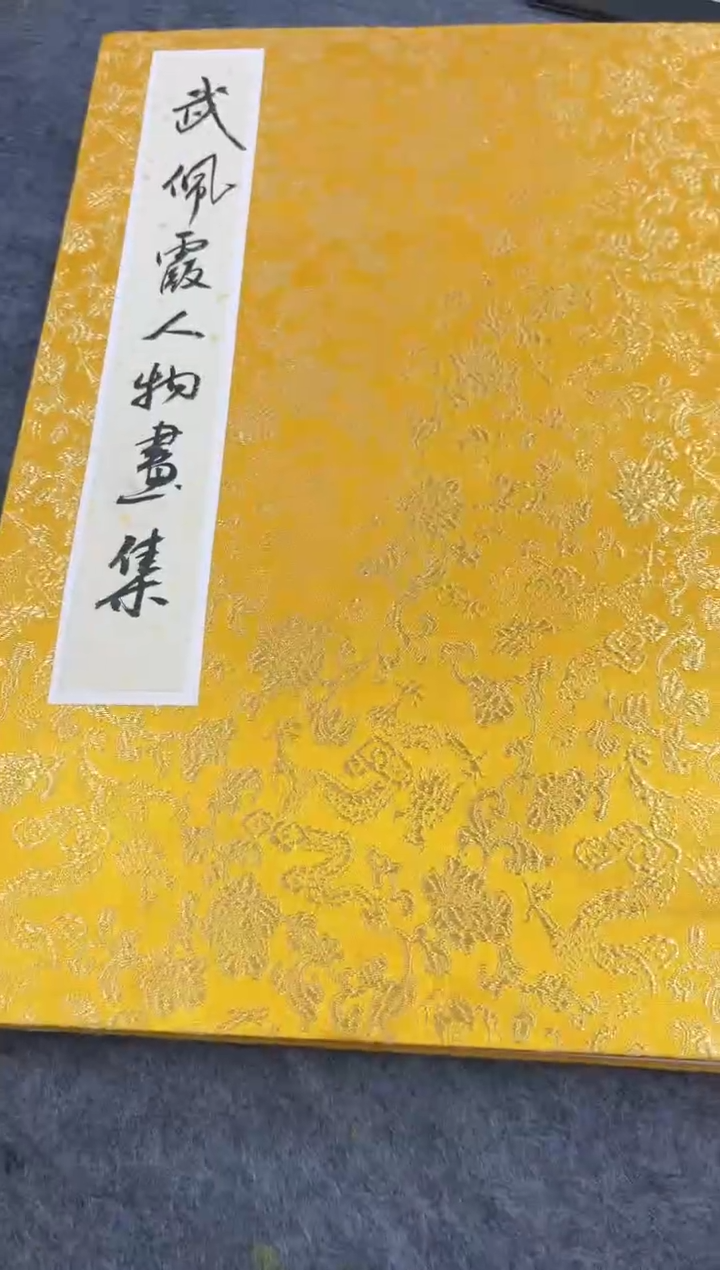 武佩霞人物畫集